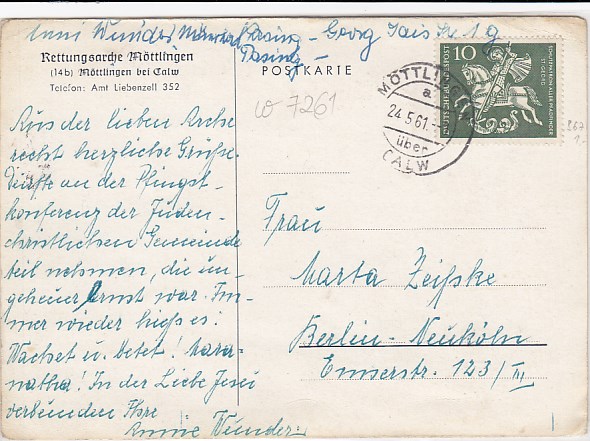 Anni Wunder, München-Pasing - Georg
Pasing -
Rettungsarche Möttlingen
(14b) Möttlingen bei Calw
Telefon: Amt Liebenzell 352
POSTKARTE
W 7261
10
DEUTSCHE BUNDESPOST
SCHUTZPATRON ALLER PFADFINDER
ST. GEORG
MÖTTLINGEN
a
24.5.61.
über
CALW
Aus der lieben Arche
recht herzliche Grüße.
Durfte an der Pfingst-
konferenz der Juden-
christlichen Gemeinde
teil nehmen, die un-
geheuer Ernst war. Im-
mer wieder hieß es:
Wachet u. betet! Mara-
natha! In der Liebe Jesu
verbunden Ihre
Annie Wunder.
Frau
Marta Zeißke
Berlin-Neuköln
Emserstr. 123/III